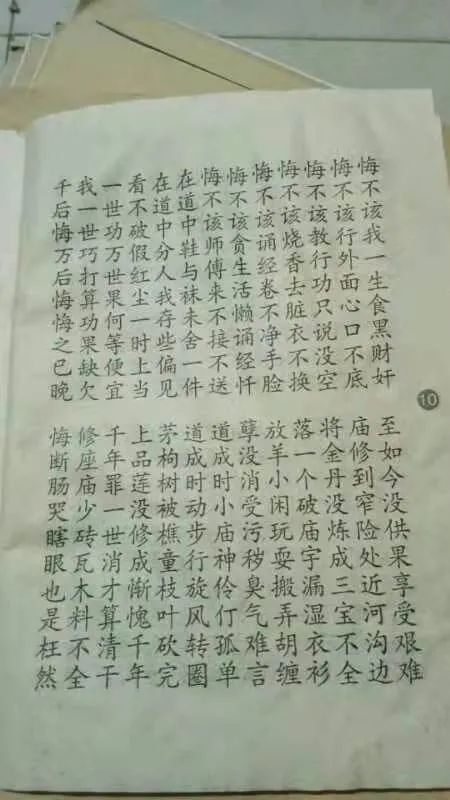 悔不该我一生食黑财奸
悔不该行外面心口不底
悔不该教行功只说没空
悔不该烧香去脏衣不换
悔不该诵经卷不净手脸
悔不该贪生活懒诵经忏
悔不该师傅来不接不送
在道中鞋与袜未舍一件
在道中分人我存些偏见
看不破假红尘一时上当
一世功万世果何等便宜
我一世巧打算功果缺欠
千后悔万后悔悔之已晚
10
至如今没供果享受艰难
庙修到窄险处近河沟边
将金丹没炼成三宝不全
落一个破庙宇漏湿衣衫
放羊小闲玩耍搬弄胡缠
孽没消受污秽臭气难言
道成时小庙神伶仃孤单
道成时动步行旋风转圈
茅枸树被樵童枝叶砍完
上品莲没修成惭愧千年
千年罪一世消才算清干
修座庙少砖瓦木料不全
悔断肠哭瞎眼也是枉然